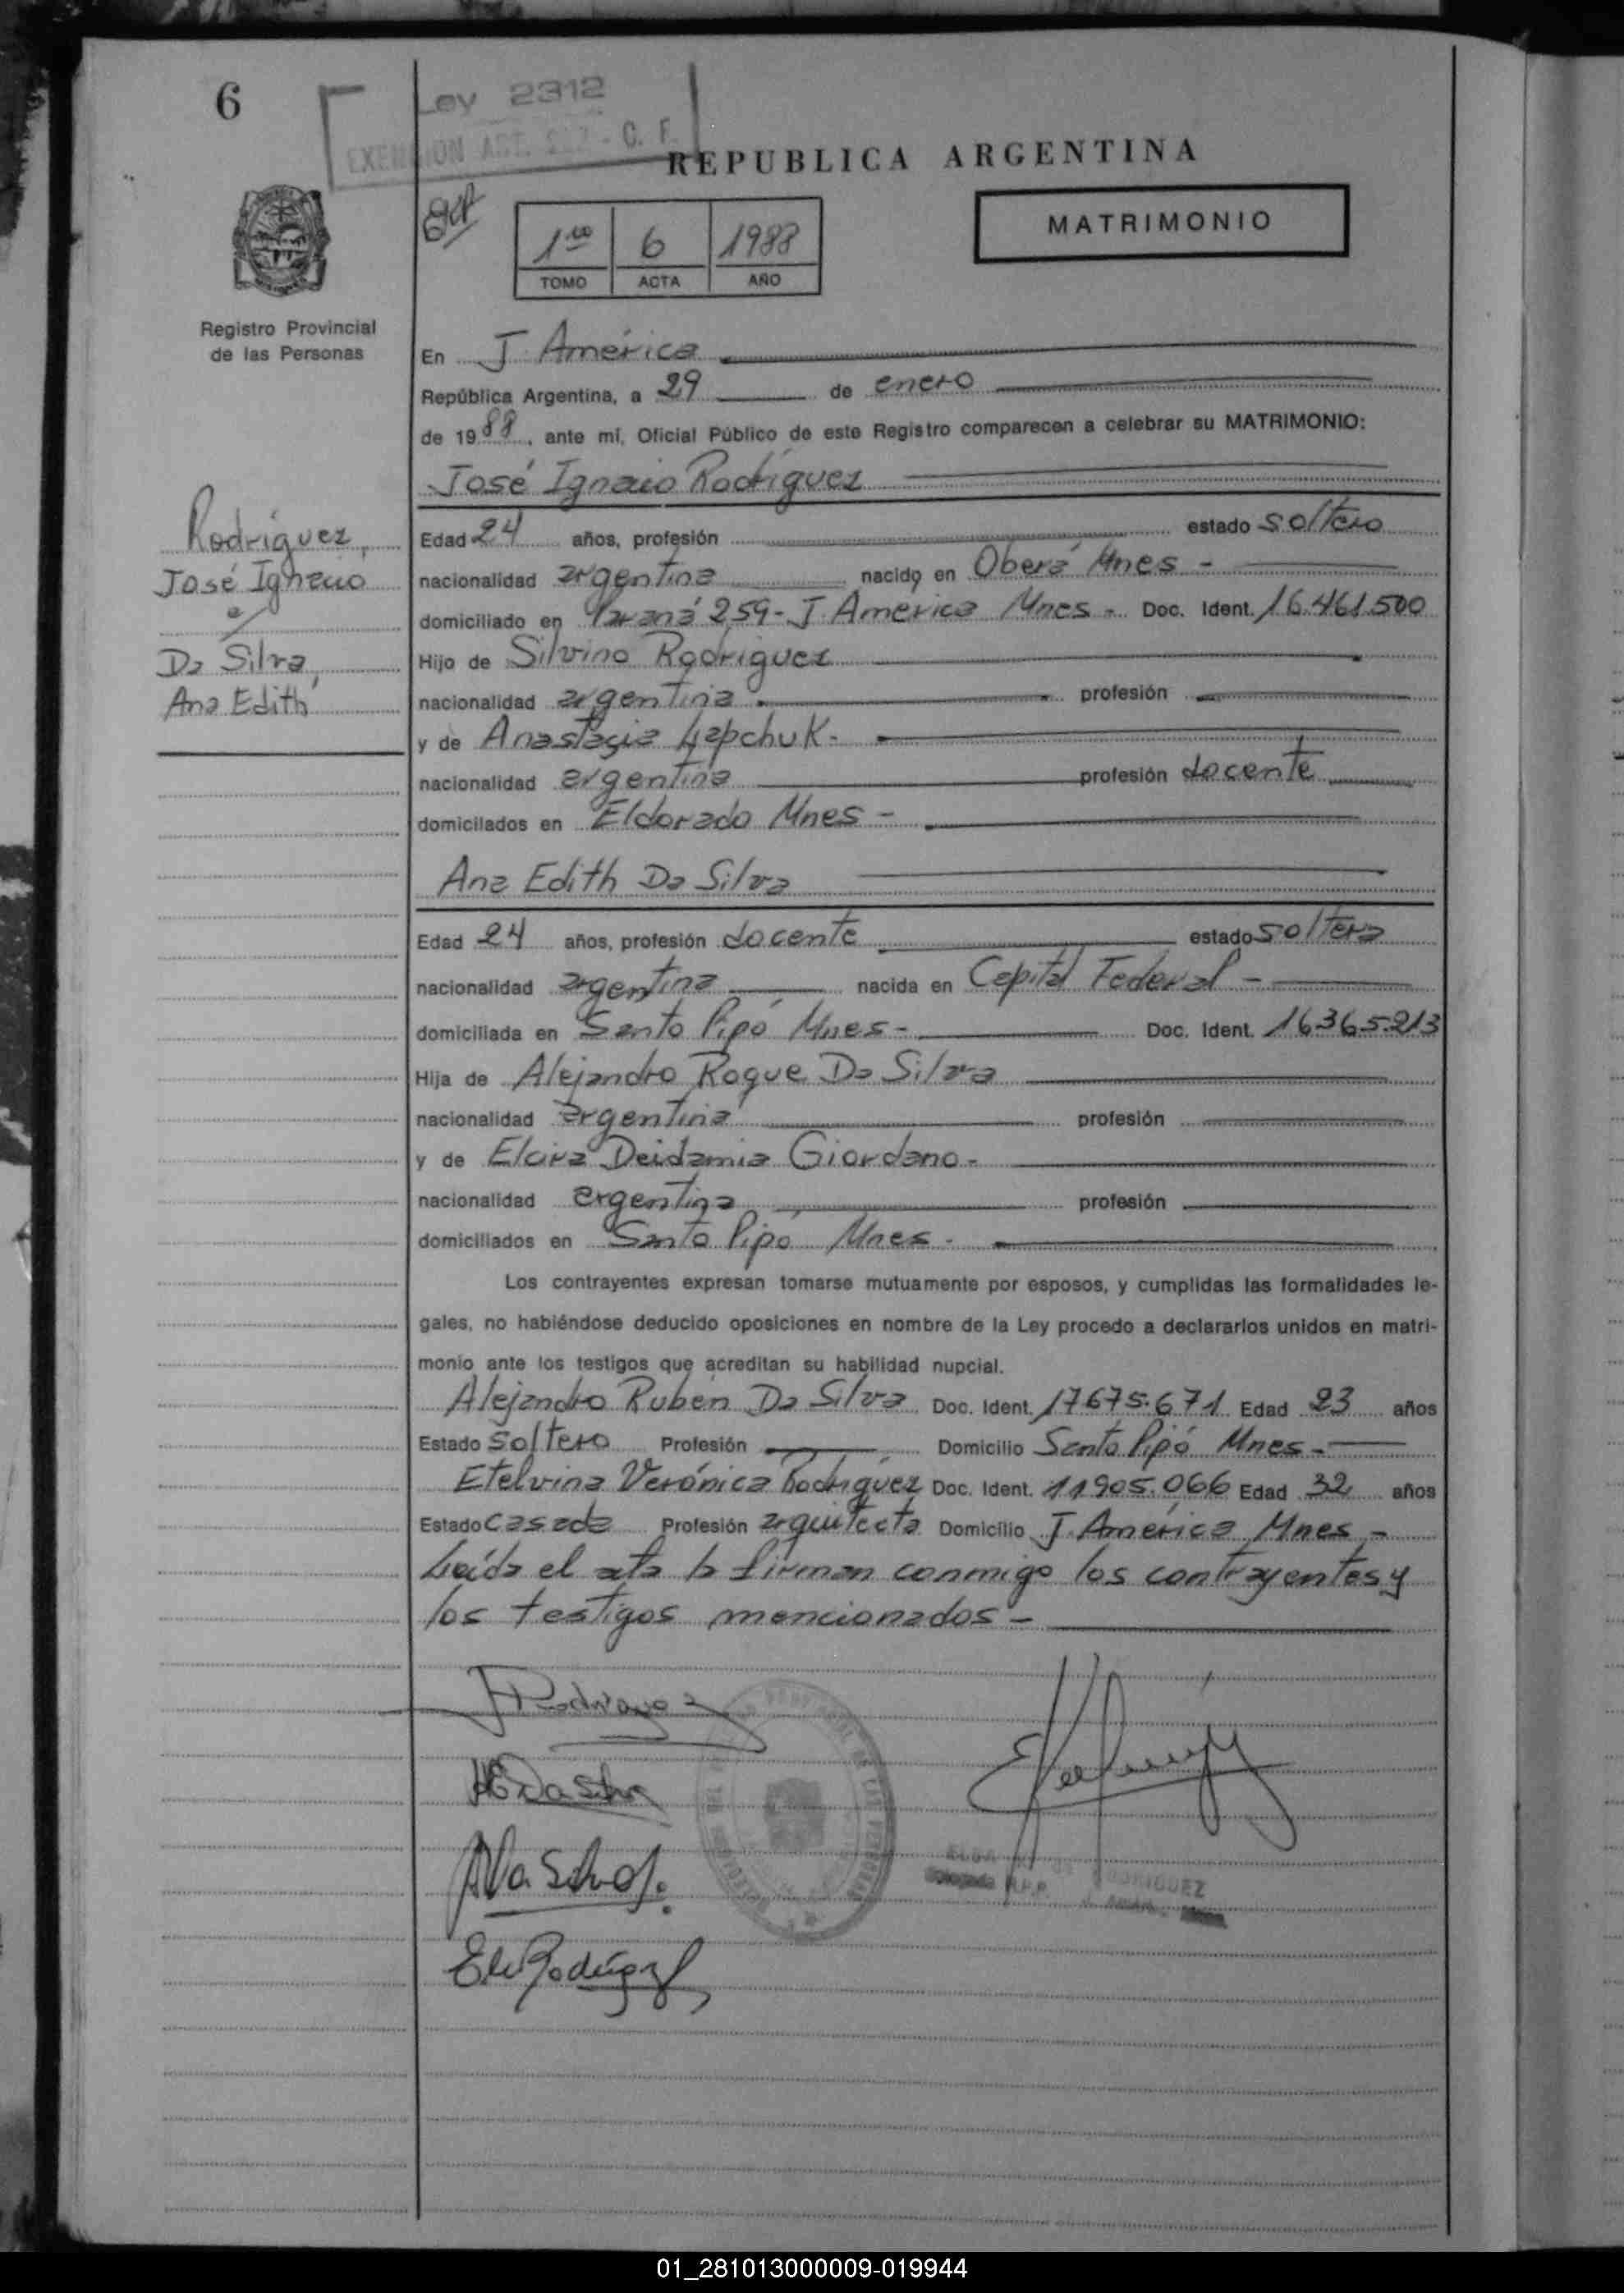 6
Ley 2312
EXENCION ART. - C. F.
REPUBLICA ARGENTINA
MATRIMONIO
1ro 6 1988
TOMO ACTA AÑO
Registro Provincial
de las Personas
En J. América
República Argentina, a 29 de enero
de 1988, ante mí, Oficial Público de este Registro comparecen a celebrar su MATRIMONIO:
José Ignacio Rodríguez
Rodríguez,
José Ignacio
c/
Da Silva,
Ana Edith
Edad 24 años, profesión estado soltero
nacionalidad argentina nacido en Oberá Mnes -
domiciliado en Paraná 259 - J. America Mnes - Doc. Ident. 16.461.500
Hijo de Silvino Rodriguez
nacionalidad argentina profesión
y de Anastasia Hapchuk -
nacionalidad argentina profesión docente
domiciliados en Eldorado Mnes -
Ana Edith Da Silva
Edad 24 años, profesión docente estado soltera
nacionalidad argentina nacida en Capital Federal -
domiciliada en Santo Pipó Mnes - Doc. Ident. 16.365.213
Hija de Alejandro Roque Da Silva
nacionalidad argentina profesión
y de Elcira Deidamia Giordano -
nacionalidad argentina profesión
domiciliados en Santo Pipó Mnes -
Los contrayentes expresan tomarse mutuamente por esposos, y cumplidas las formalidades le-
gales, no habiéndose deducido oposiciones en nombre de la Ley procedo a declararlos unidos en matri-
monio ante los testigos que acreditan su habilidad nupcial.
Alejandro Rubén Da Silva Doc. Ident. 17.675.671 Edad 23 años
Estado soltero Profesión Domicilio Santo Pipó Mnes -
Etelvina Verónica Rodríguez Doc. Ident. 11.905.066 Edad 32 años
Estado casada Profesión arquitecta Domicilio J. América Mnes -
Leída el acta la firman conmigo los contrayentes y
los testigos mencionados -
Rodriguez
AEDaSilva
ADaSilva
Rodríguez
RODRIGUEZ
Delegada R.P.P.
01_281013000009-019944